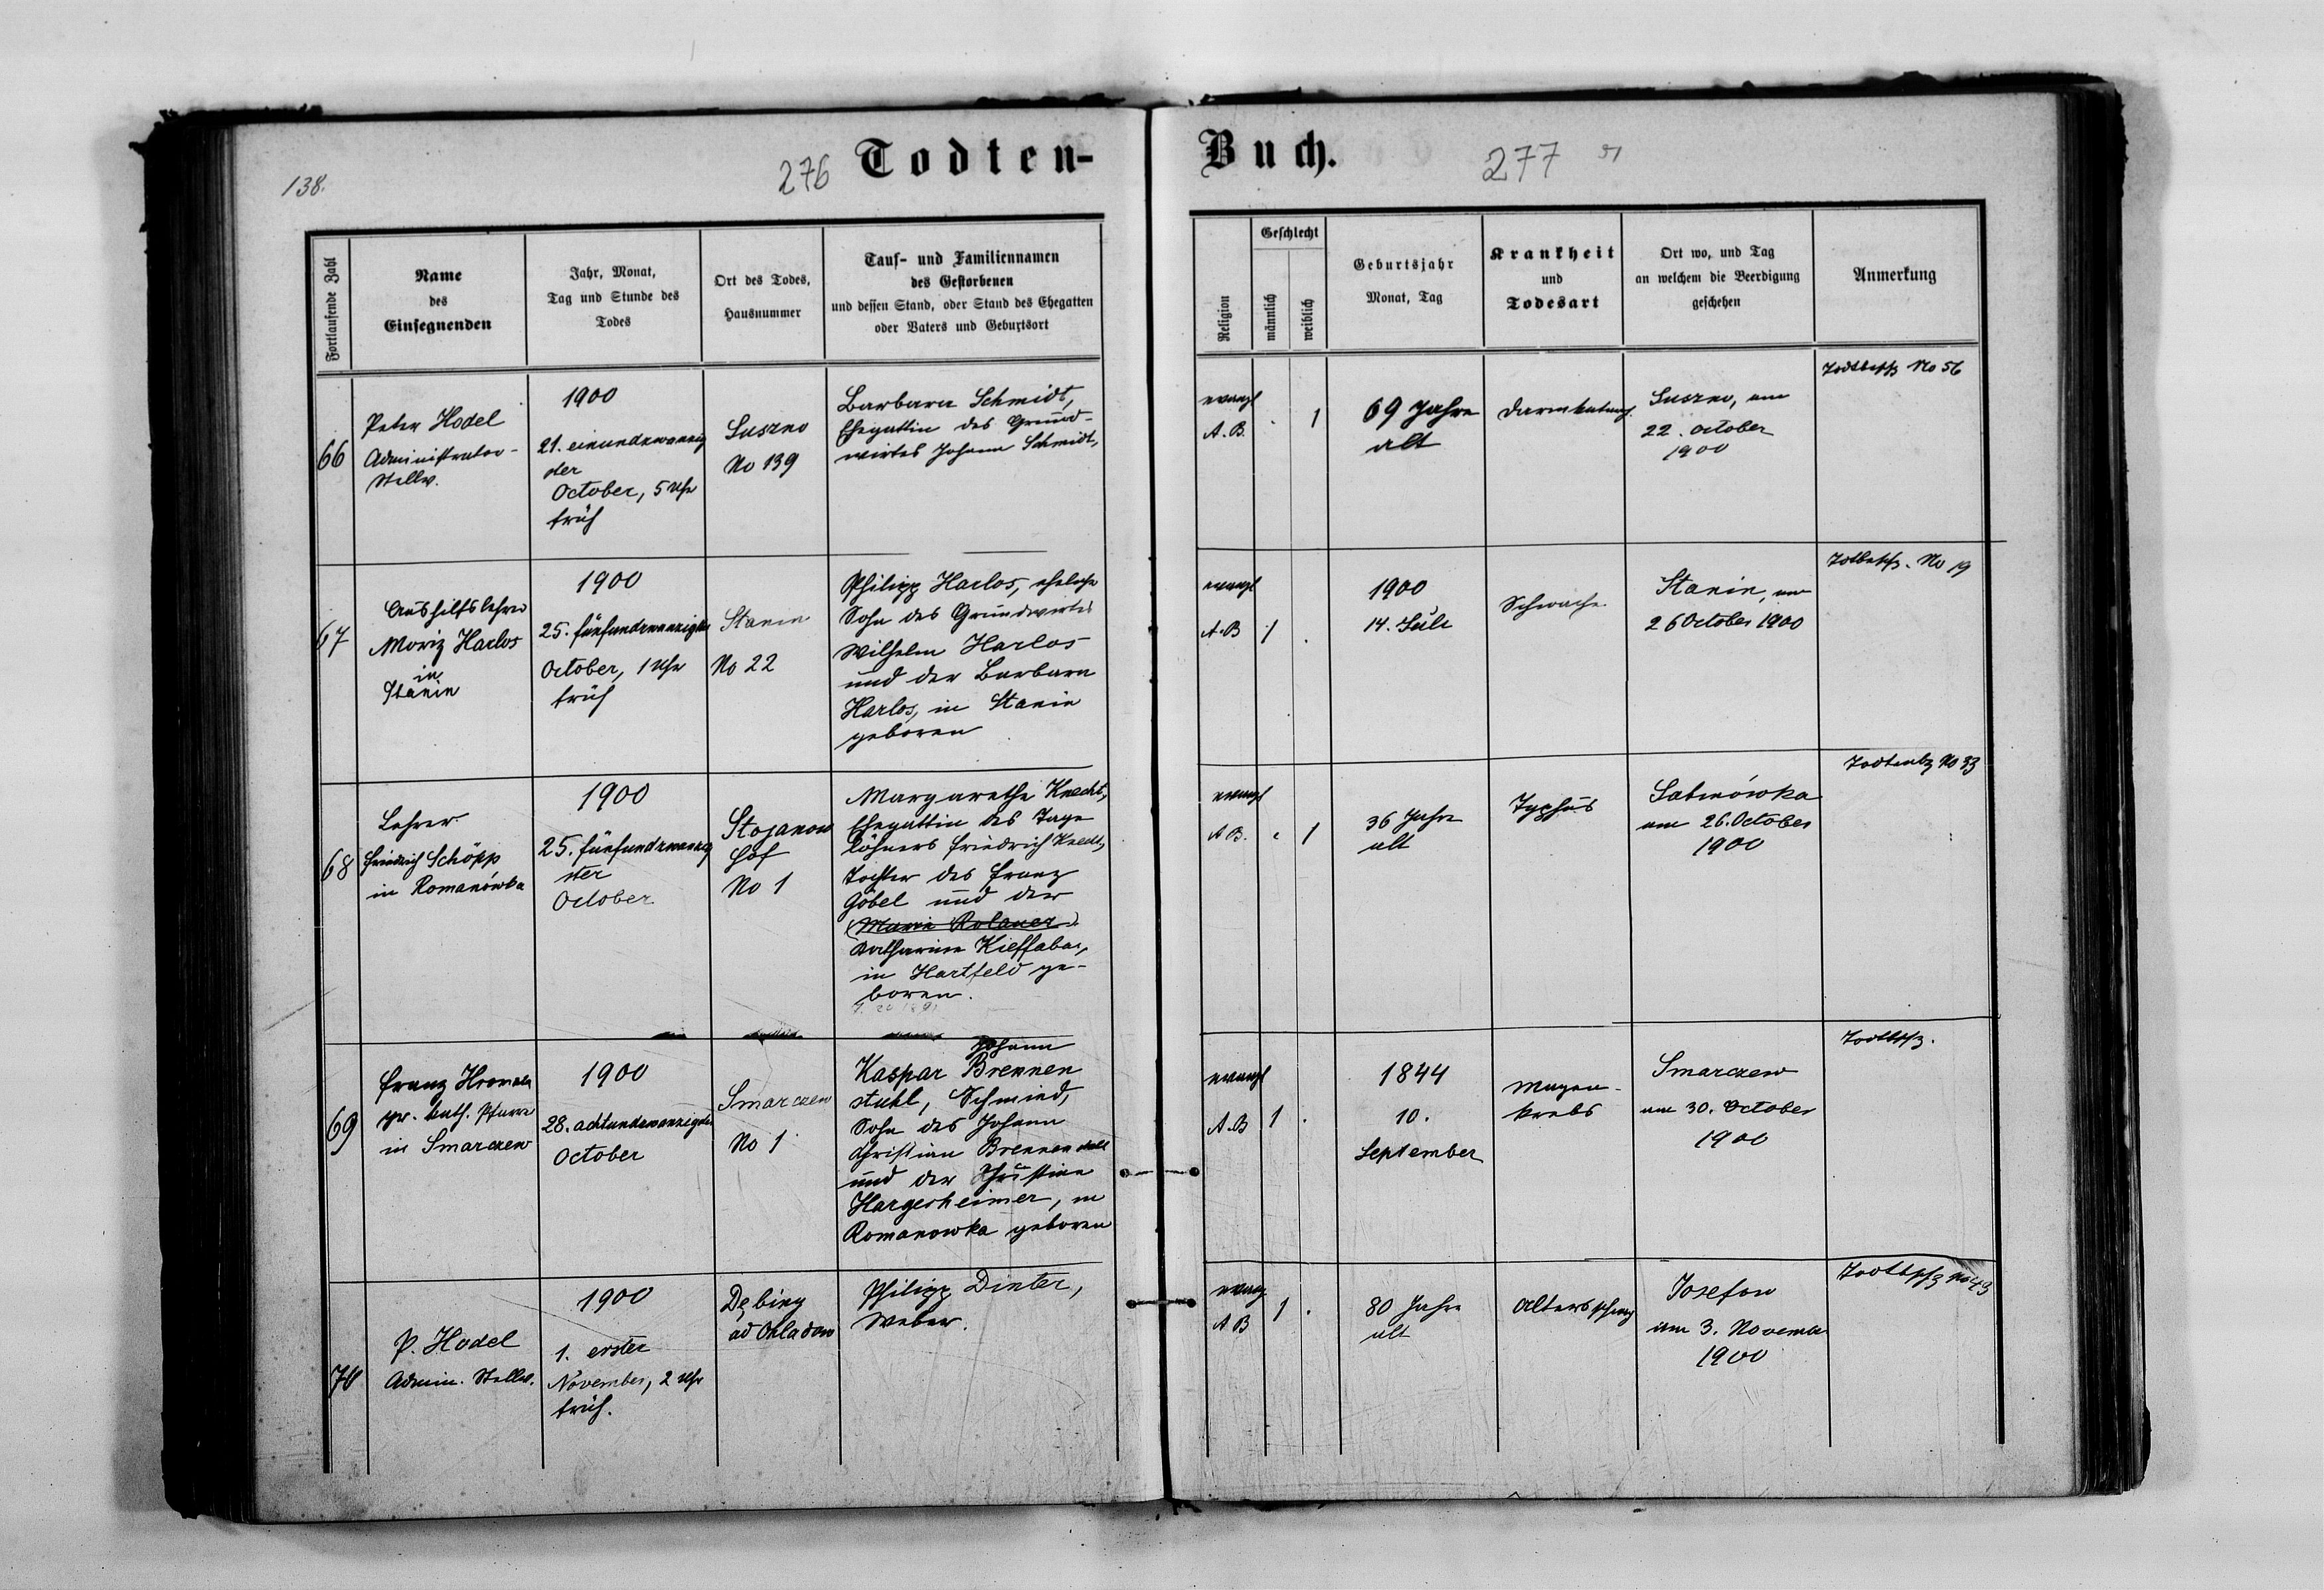 138.
276
Todten-
Fortlaufende Zahl
Name
des
Einsegnenden
Jahr, Monat,
Tag und Stunde des
Todes
Ort des Todes,
Hausnummer
Tauf- und Familiennamen
des Gestorbenen
und dessen Stand, oder Stand des Ehegatten
oder Vaters und Geburtsort
66
Peter Hodel
Administrator-
Stellv.
1900
21. einundzwanzig
ster
October, 5 Uhr
früh
Suszno
No 139
Barbara Schmidt,
Ehegattin des Grund-
wirtes Johann Schmidt,
67
Aushilfslehrer
Moriz Harlos
in
Stanin
1900
25. fünfundzwanzigster
October, 1 Uhr
früh
Stanin
No 22
Philipp Harlos, ehelicher
Sohn des Grundwirtes
Wilhelm Harlos
und der Barbara
Harlos, in Stanin
geboren
68
Lehrer
Friedrich Schöpp
in Romanówka
1900
25. fünfundzwanzig
ster
October
Stojanow
Hof
No 1
Margarethe Knecht,
Ehegattin des Tage
löhners Friedrich Knecht,
Tochter des Franz
Göbel und der
(Maria Rolauer)
Katharina Kieffaber,
in Hartfeld ge-
boren.
69
Franz
gr. kath. Pfarre
in Smarzew
1900
28. achtundzwanzigster
October
Smarzew
No 1
Johann
Kaspar Brennen
stuhl, Schmied,
Sohn des Johann
Christian Brennenstuhl
und der Christine
Hargesheimer, in
Romanowka geboren
70
P. Hodel
Admin. Stellv.
1900
1. erster
November, 2 Uhr
früh.
Dębiny
ad Ohladow
Philipp Dinter,
Weber.
Buch.
277
Religion
Geschlecht
männlich
weiblich
Geburtsjahr
Monat, Tag
Krankheit
und
Todesart
Ort wo, und Tag
an welchem die Beerdigung
geschehen
Anmerkung
evangl
A. B.
. 1
69 Jahre
alt
Suszno, am
22. October
1900
No 56
evangl
A. B
1 .
1900
14. Juli
Schwäche
Stanin, am
26 October 1900
No 19
evangl
A B.
. 1
36 Jahre
alt
Typhus
Sabinówka
am 26. October
1900
No 33
evangl
A. B
1 .
1844
10.
September
Magen-
krebs
Smarzew
am 30. October
1900
evang
A B
1 .
80 Jahre
alt
Josefow
am 3. November
1900
No 43